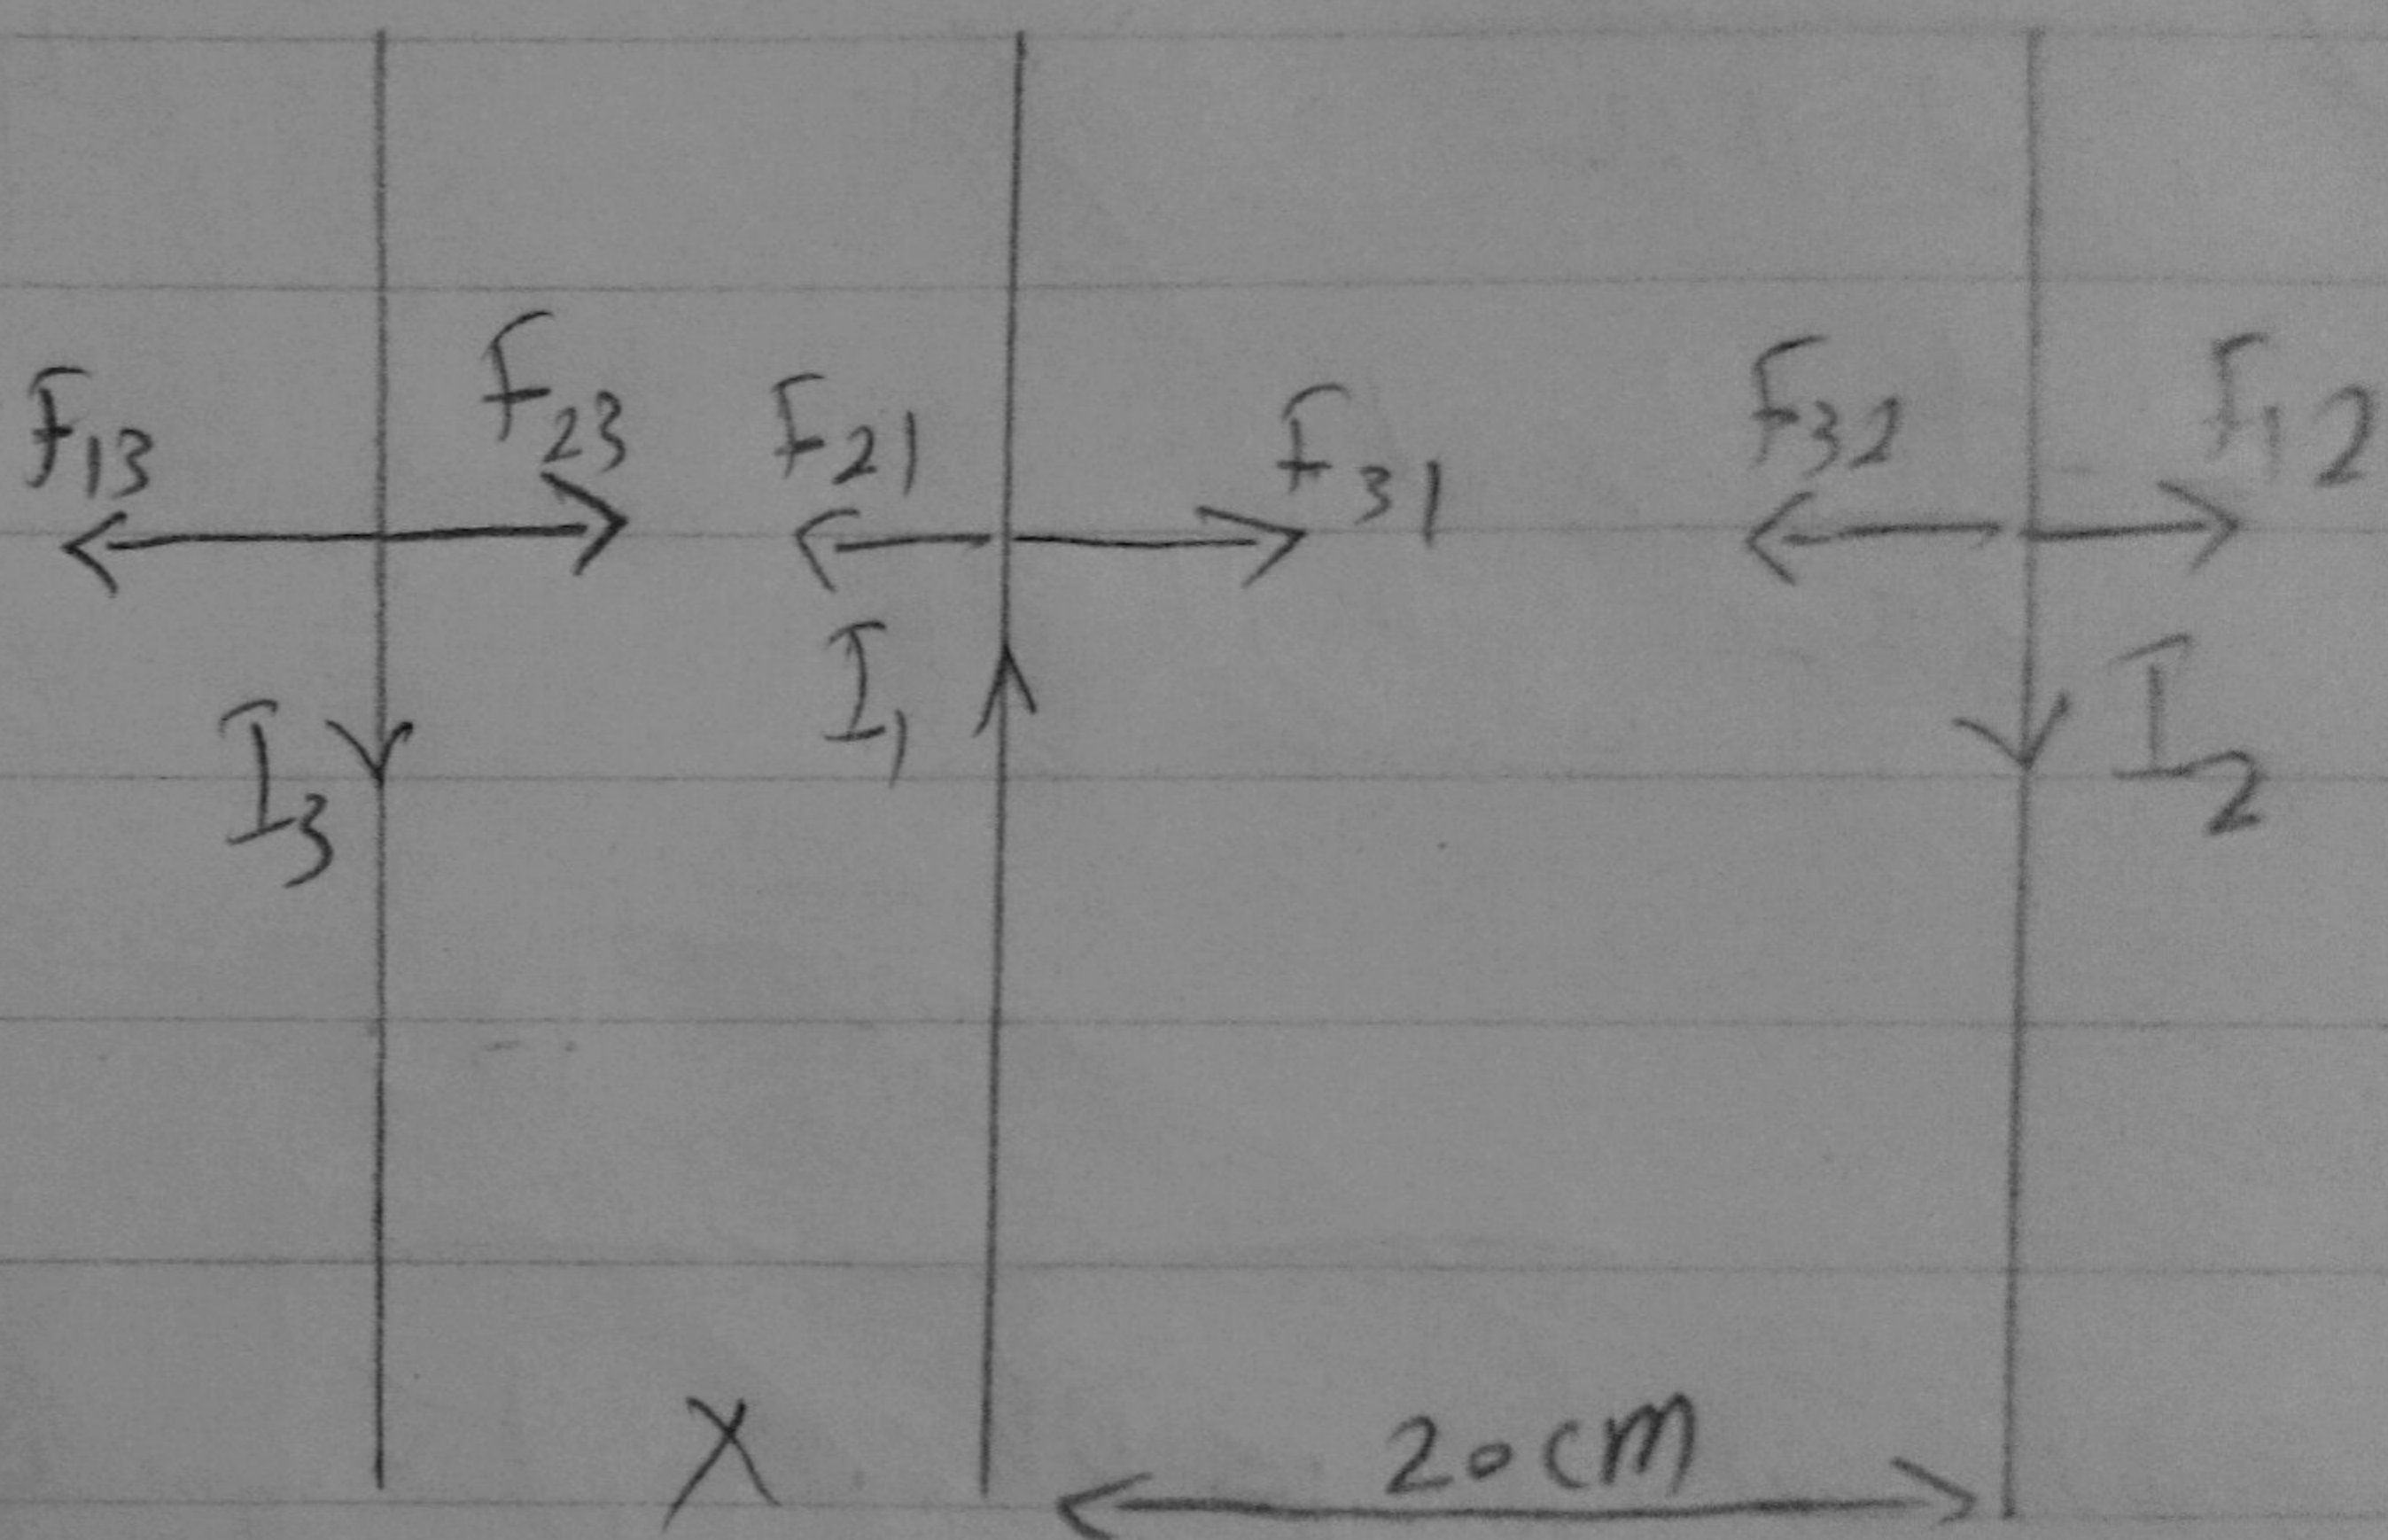 F13 F23 F21 F31 F32 F12
I3 I1 I2
X 20cm